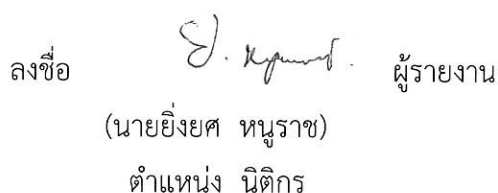 ลงชื่อ ผู้รายงาน
(นายยิ่งยศ หนูราช)
ตำแหน่ง นิติกร